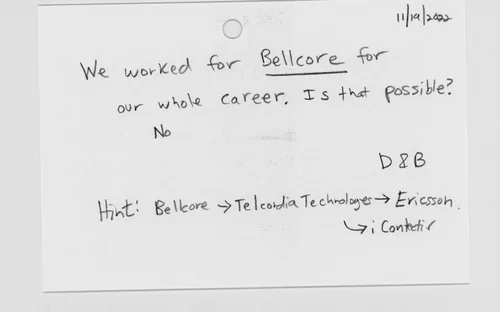 11/19/2022
We worked for Bellcore for
our whole career. Is that possible?
No
D & B
Hint: Bellcore → Telcordia Technologies → Ericsson.
↳ i